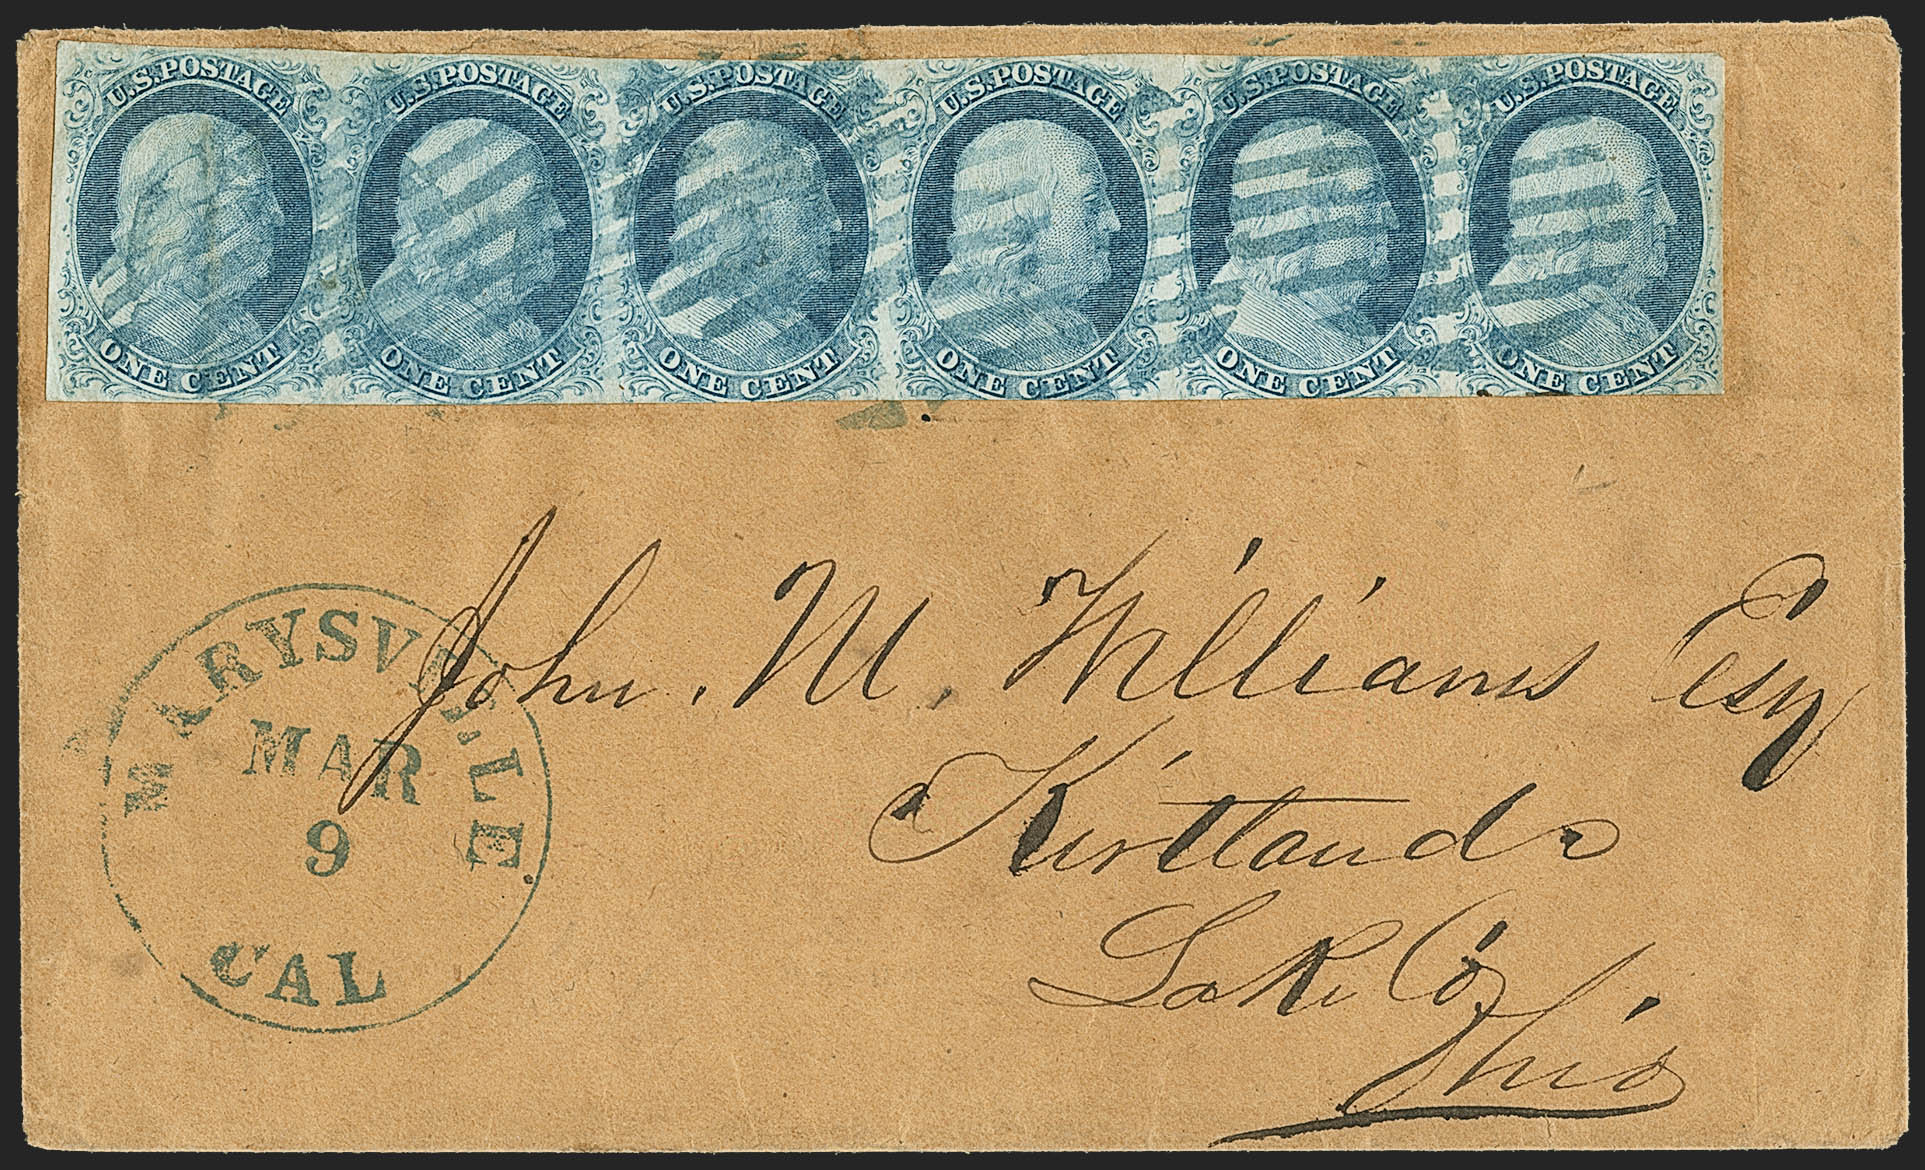 U.S. POSTAGE U.S. POSTAGE U.S. POSTAGE U.S. POSTAGE U.S. POSTAGE U.S. POSTAGE
ONE CENT ONE CENT ONE CENT ONE CENT ONE CENT ONE CENT
MARYSVILLE
MAR
9
CAL
John. M. Williams Esq
Kirtland
Lake Co
Ohio